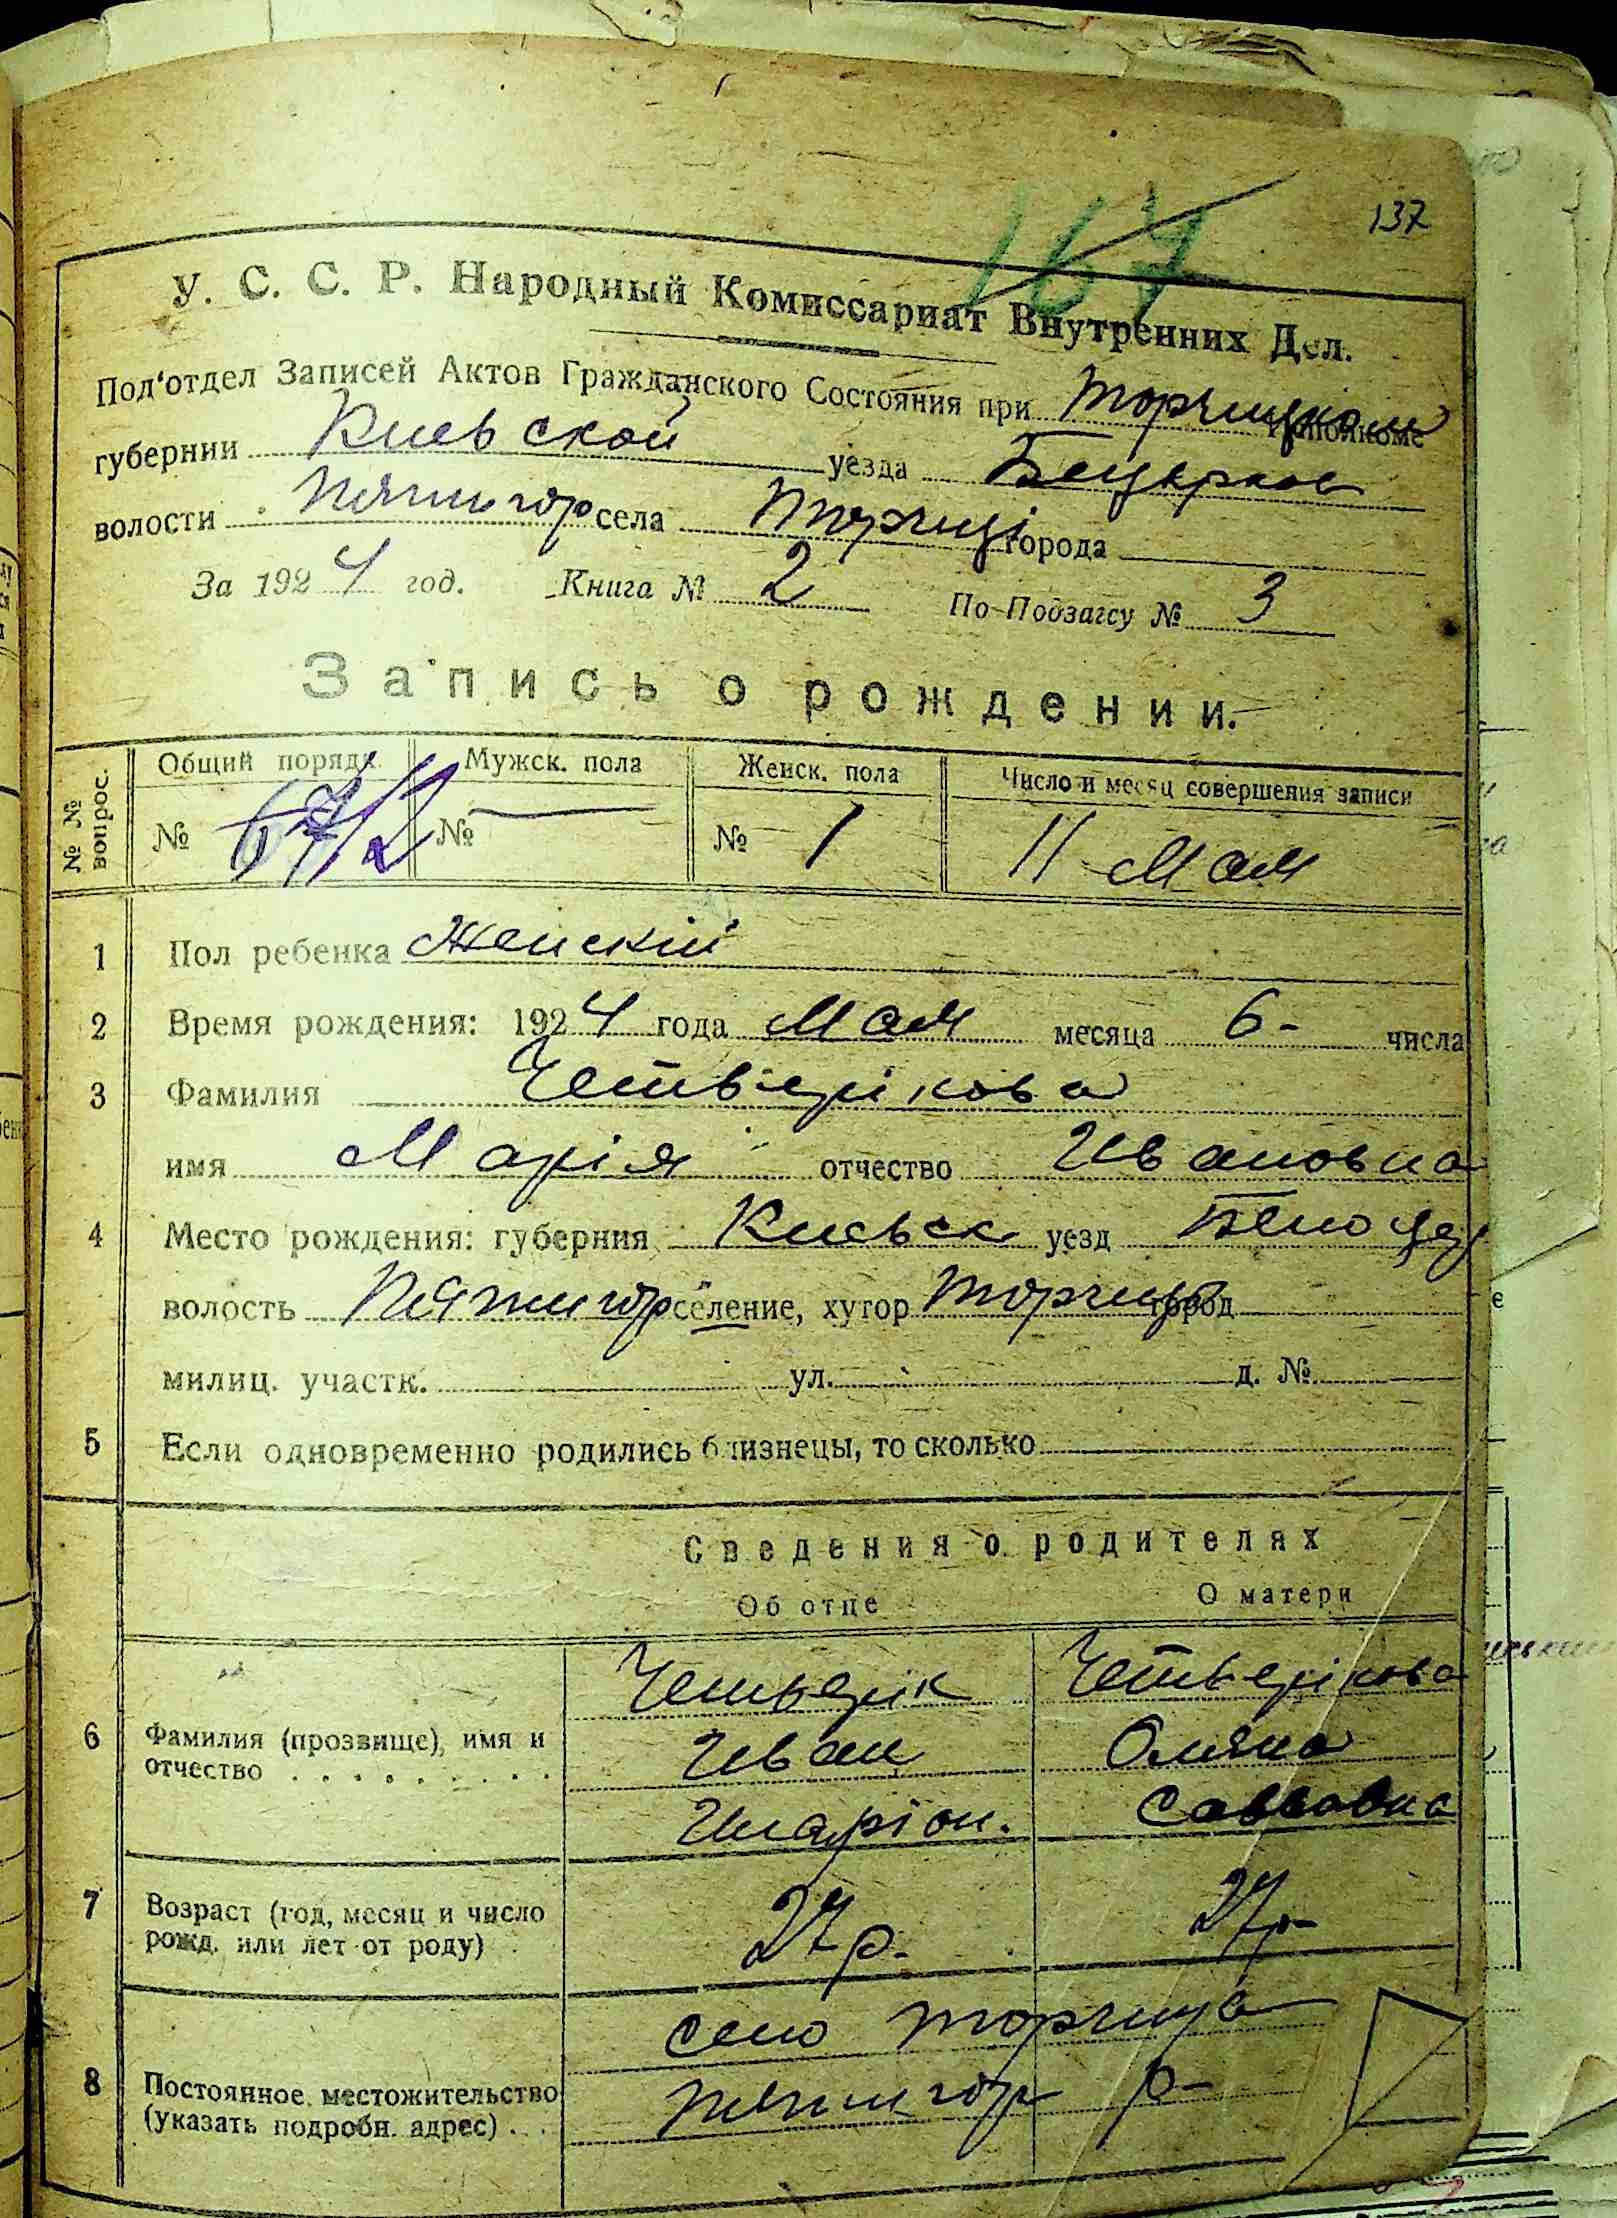 137
167
У. С. С. Р. Народный Комиссариат Внутренних Дел.
Под'отдел Записей Актов Гражданского Состояния при Торчицком
губернии Киевской уезда Бецерков
волости Пятигор села Торчиці города
За 1924 год. Книга № 2 По Подзагсу № 3
Запись о рождении.
№ № вопрос. Общий порядк. Мужск. пола Женск. пола Число и месяц совершения записи
№ № — № 1 11 Мая
1 Пол ребенка Женскій
2 Время рождения: 1924 года Мая месяца 6- числа
3 Фамилия Четверікова
имя Марія отчество Ивановна
4 Место рождения: губерния Киевск уезд Белоцер
волость Пятигор селение, хутор Торчица город
милиц. участк. ул. д. №
5 Если одновременно родились близнецы, то сколько
Сведения о родителях
Об отце О матери
Четверік Четверікова
6 Фамилия (прозвище), имя и Иван Оляна
отчество Иларіон. Саввовна
7 Возраст (год, месяц и число рожд. или лет от роду) 27 р. 27 р-
село Торчиця
8 Постоянное местожительство Пятигор р-
(указать подробн. адрес)